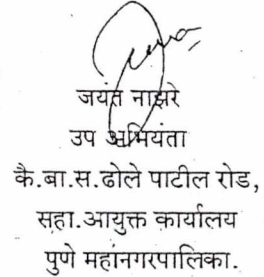 जयंत नाझरे
उप अभियंता
कै.बा.स.ढोले पाटील रोड,
सहा.आयुक्त कार्यालय
पुणे महानगरपालिका.